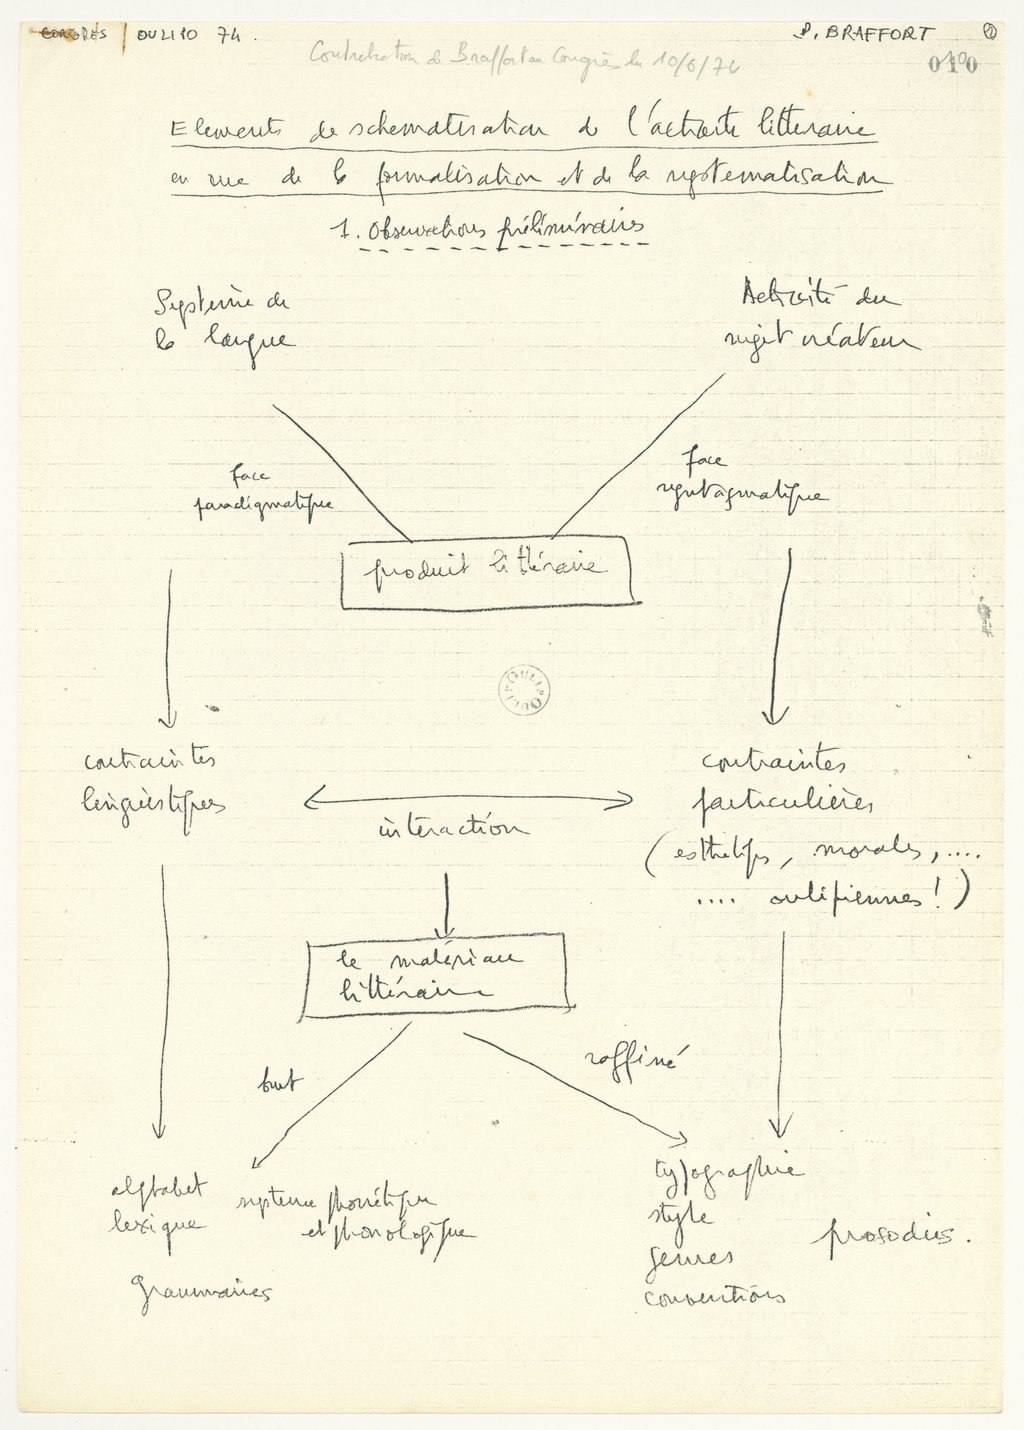 CONGRES | OULIPO 74.
P. BRAFFORT
②
Contribution de Braffort au Congrès du 10/6/74
010
Elements de schématisation de l'activité littéraire
en vue de la formalisation et de la systématisation
1. Observations préliminaires
Système de
la langue
Activité du
sujet créateur
face
paradigmatique
face
syntagmatique
produit littéraire
OULIPO
contraintes
linguistiques
interaction
contraintes
particulières
(esthétiqs, morales, ....
.... oulipiennes!)
le matériau
littéraire
brut
raffiné
alphabet
lexique
système phonétique
et phonologique
grammaires
typographie
style
genres
conventions
prosodies.